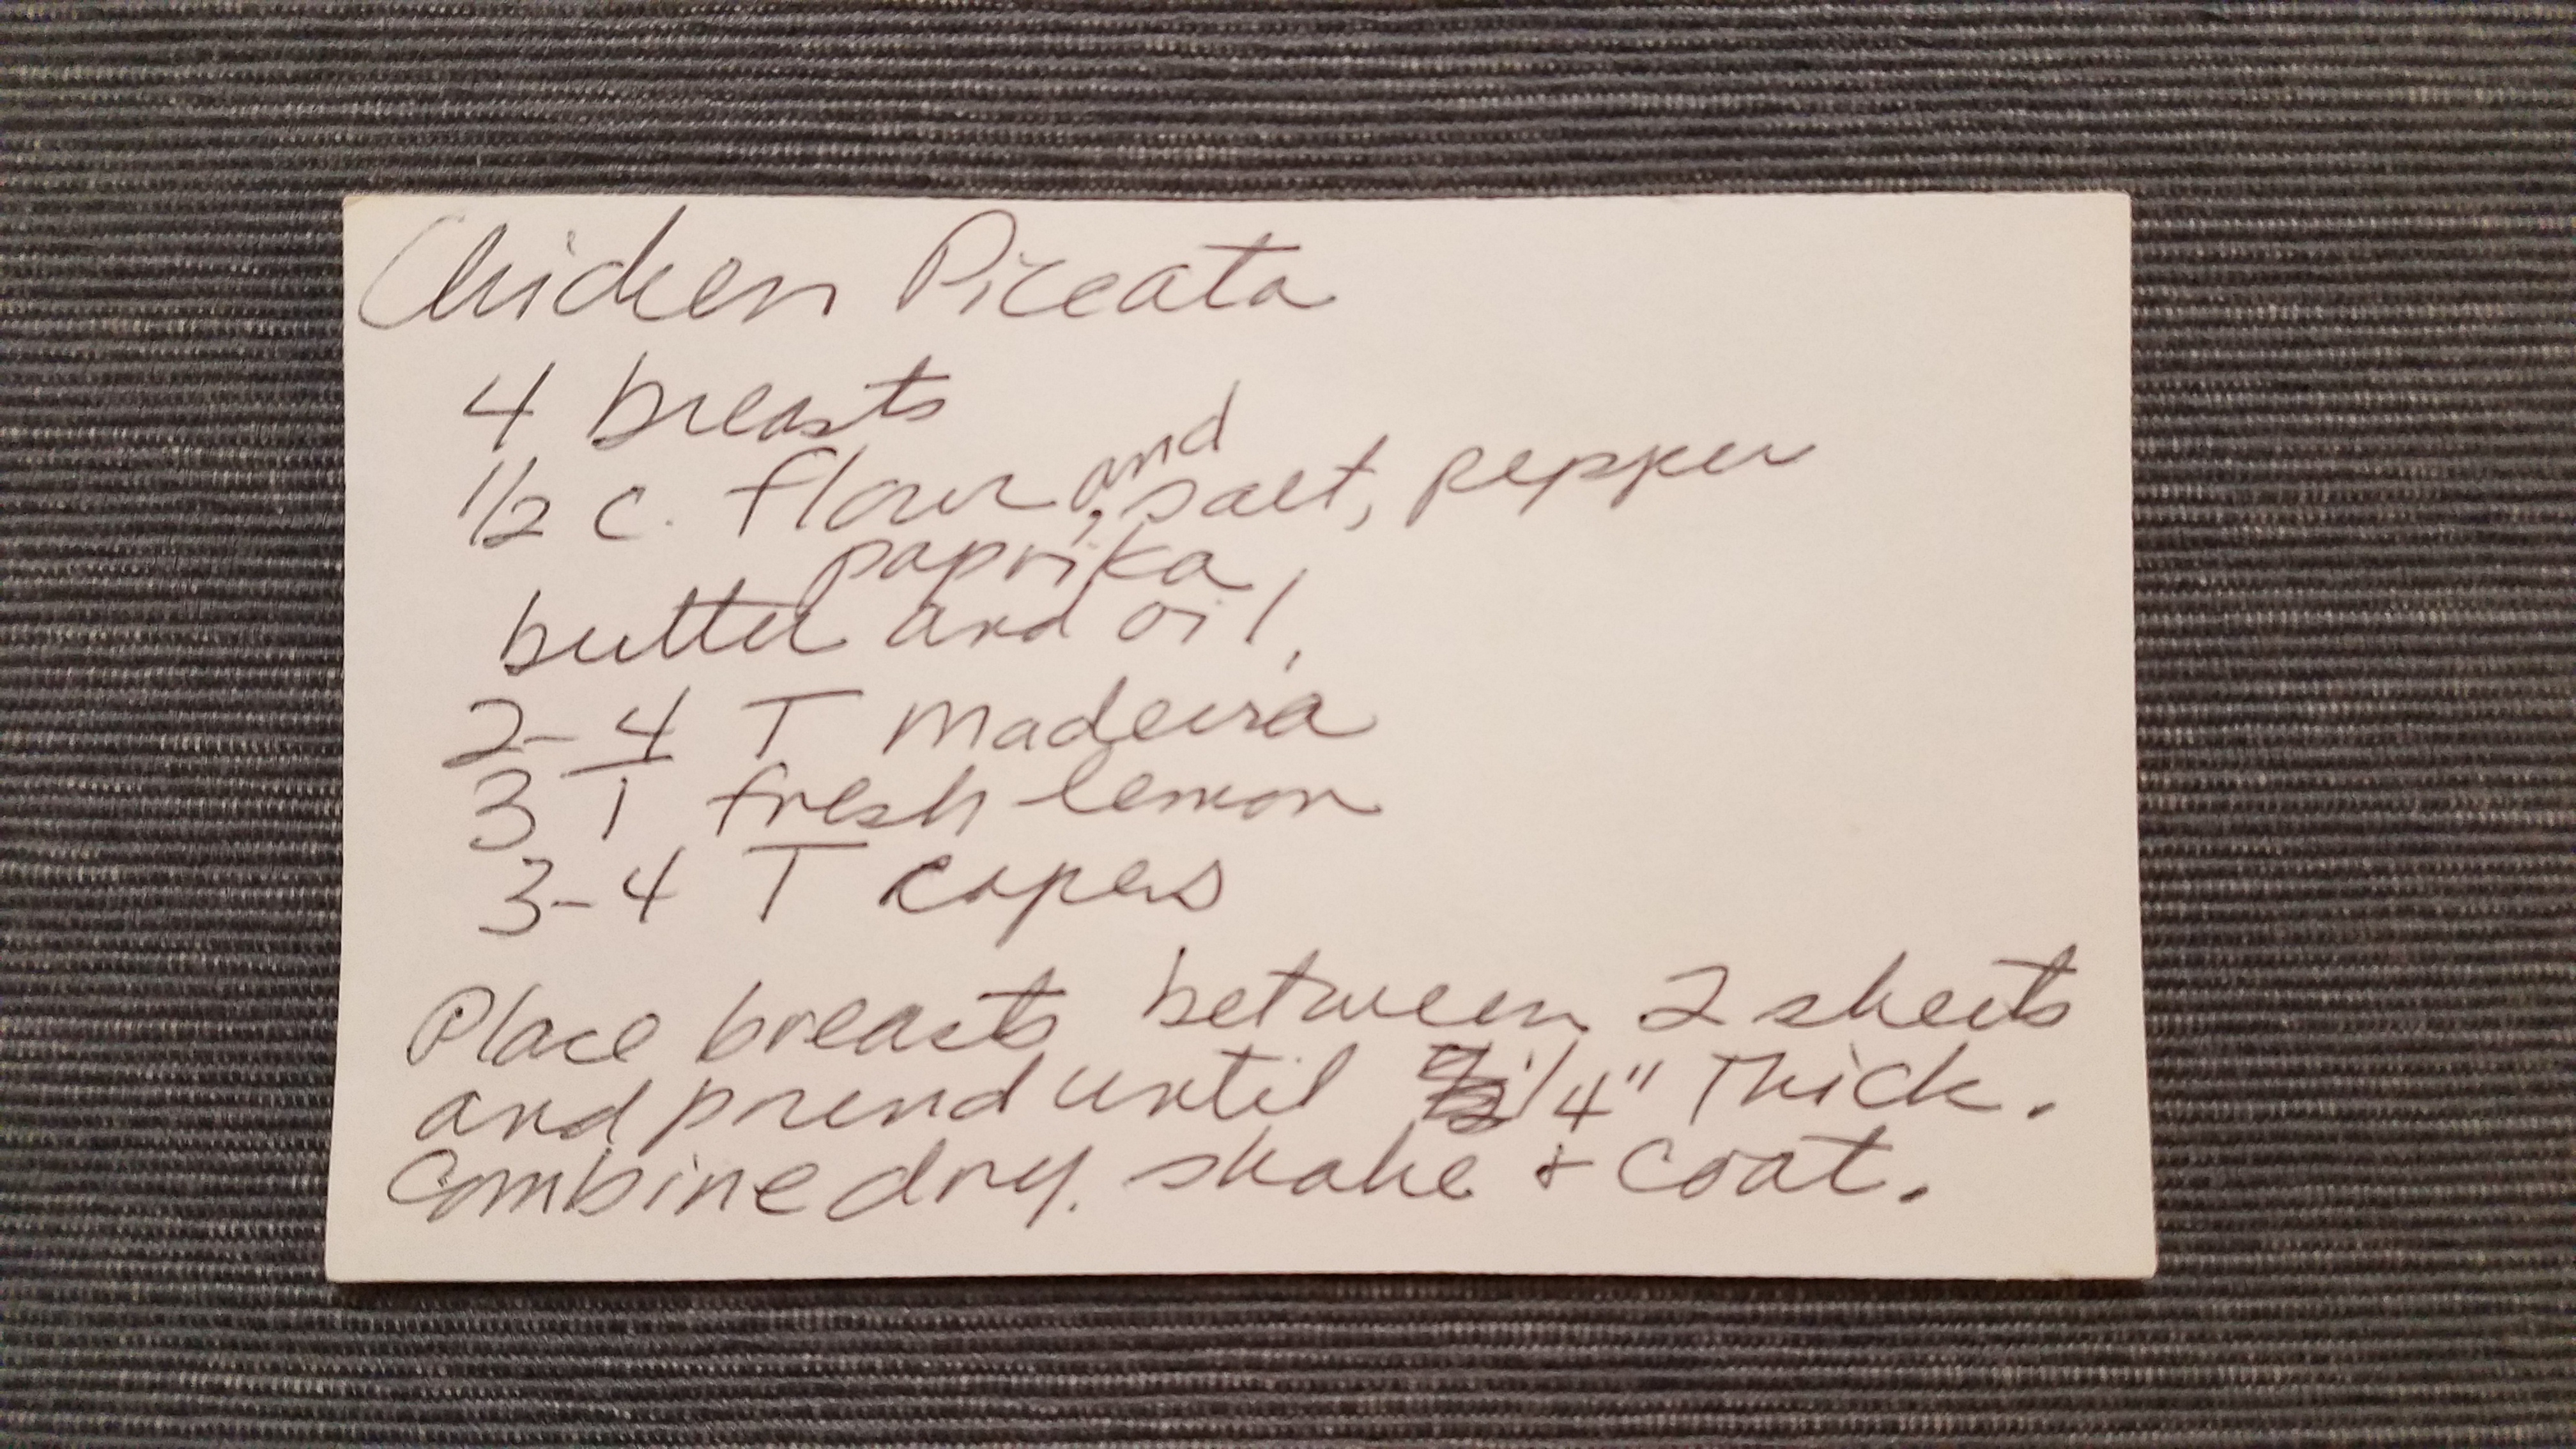 Chicken Piccata
4 breasts
1/2 c. flour and, salt, pepper
paprika
butter and oil,
2-4 T Madeira
3 T fresh lemon
3-4 T capers
Place breasts between 2 sheets
and pound until 1/4" Thick.
Combine dry. shake & coat.